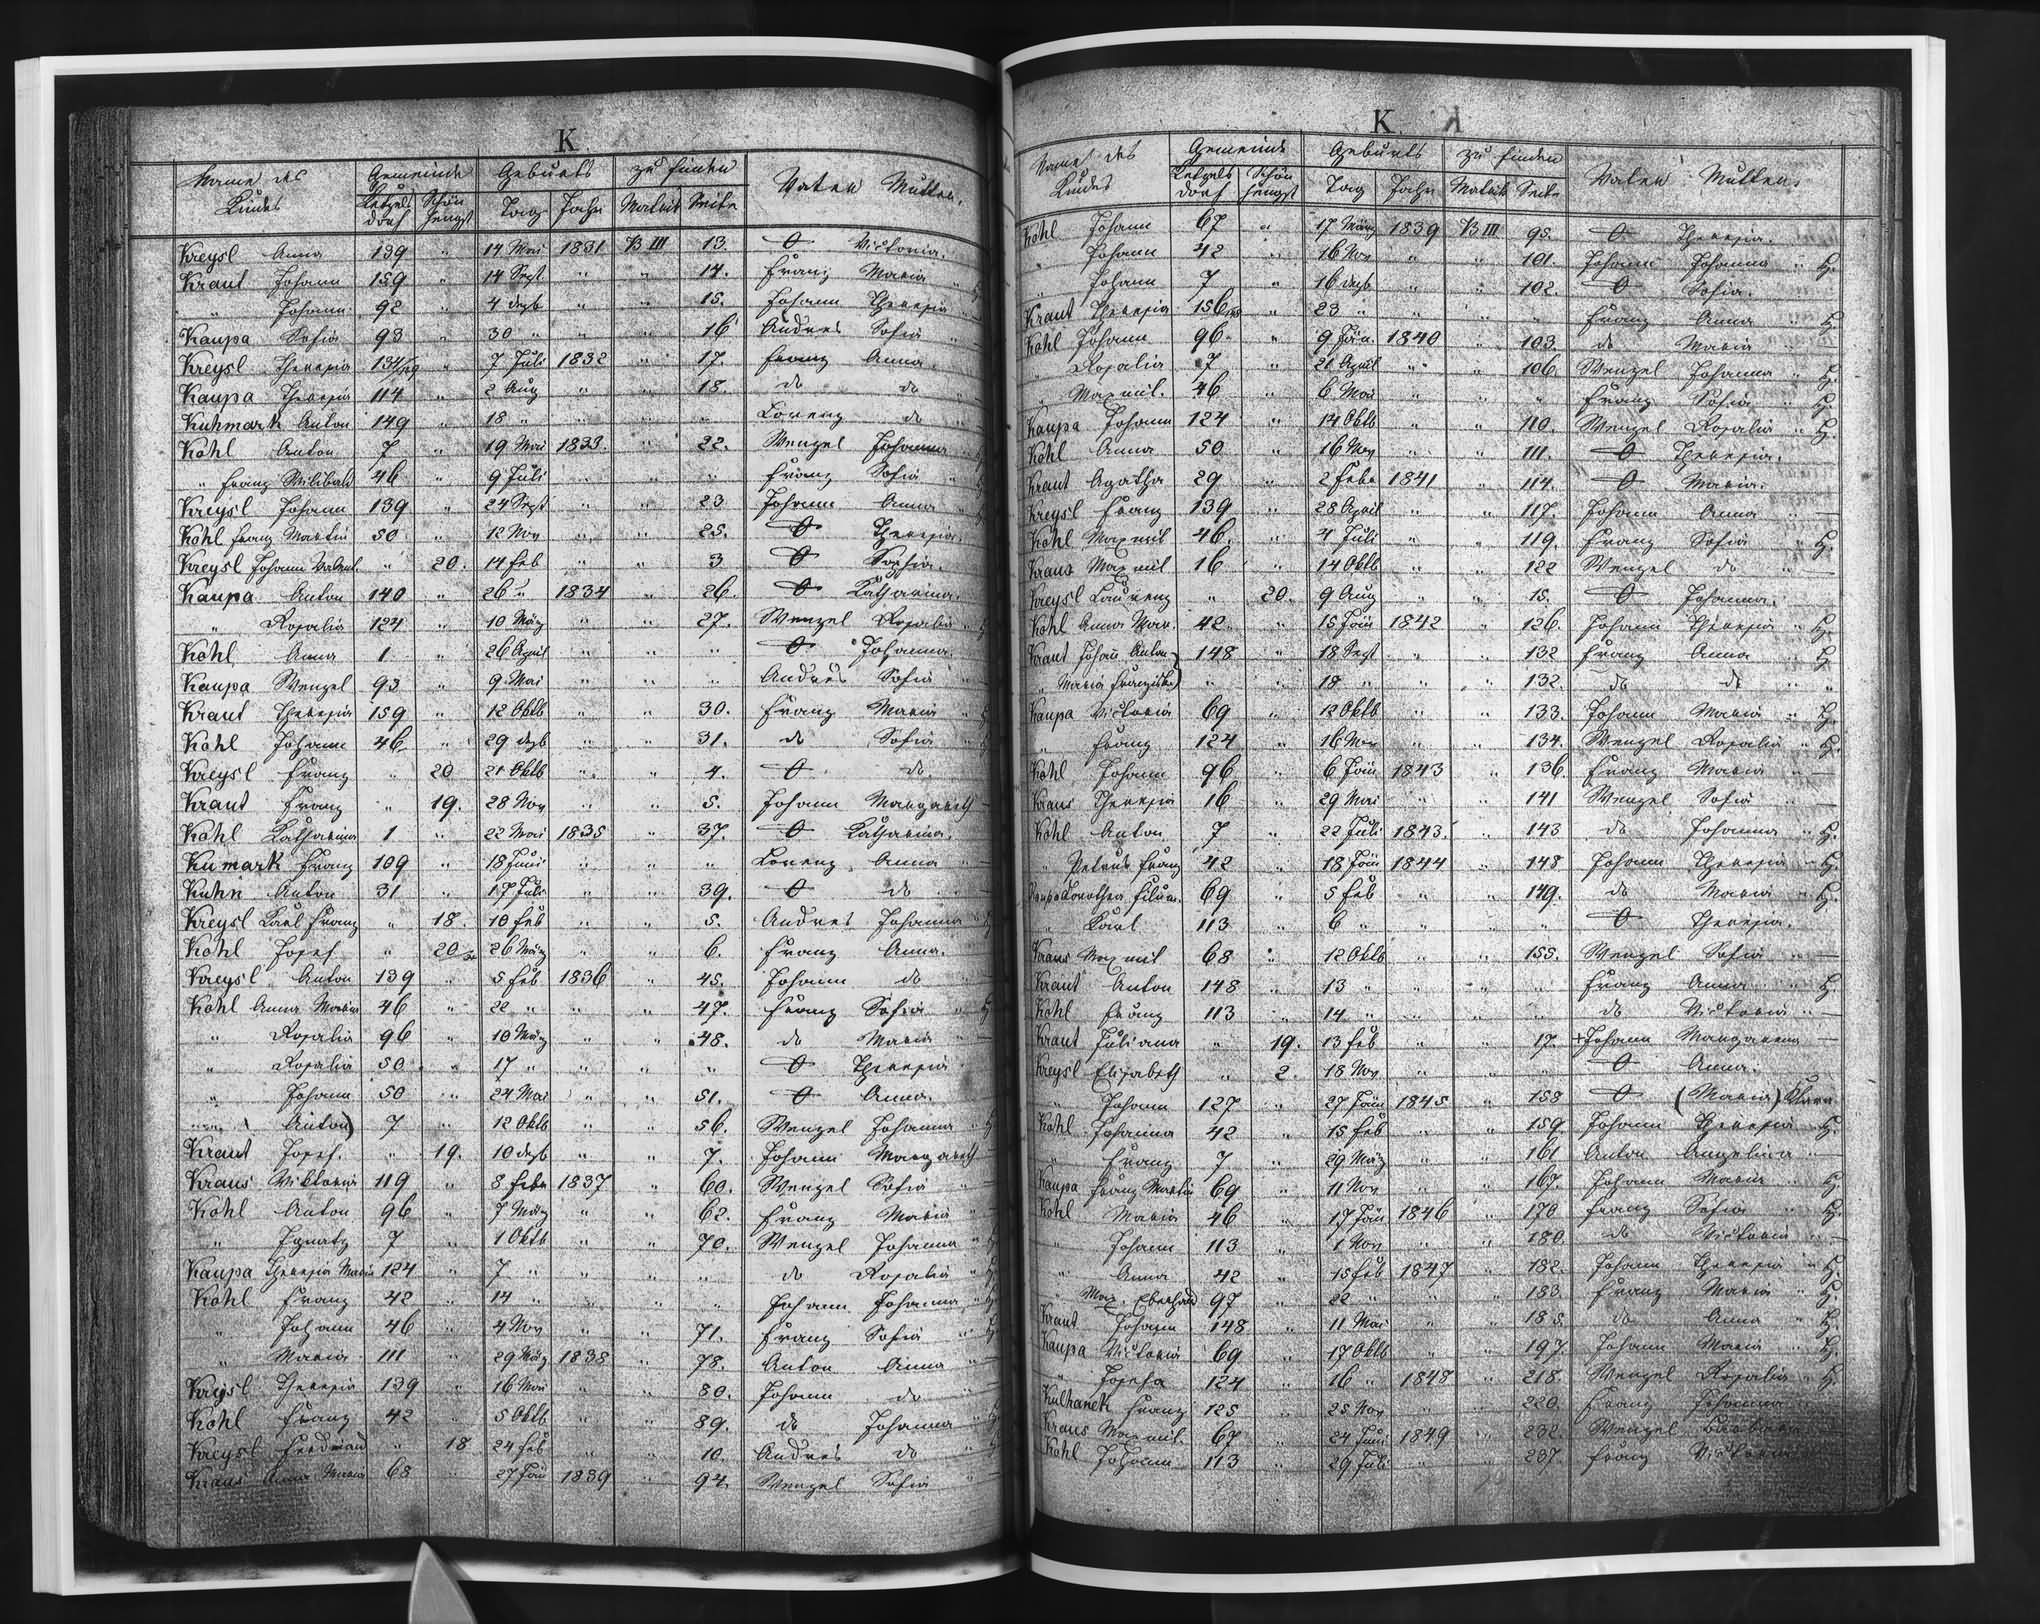 K.
Name des Kindes Gemeinde Geburts zu finden Vater Mutter.
Ketzels dorf Schön hengst Tag Jahr Matrik Seite
Kreysl Anna 139 " 14 Mai 1831 B III 13. O Victoria.
Kraut Johann 159 " 14 Sept. " " 14. Franz Maria "
" Johann 92 " 4 dezb " " 15. Johann Theresia "
Kaupa Sofia 93 " 30 " " " 16 Andres Sofia "
Kreysl Theresia 134/29 " 7 Juli 1832 " 17. Franz Anna
Kaupa Theresia 114 " 2 Aug " " 18. do do "
Kuhmark Anton 149 " 18 " " " " Lorenz do "
Kohl Anton 7 " 19 Mai 1833. " 22. Wenzel Johanna "
" Franz Wilibald 46 " 9 Juli " " " Franz Sofia "
Kreysl Johann 139 " 24 Sept " " 23 Johann Anna "
Kohl Franz Martin 50 " 12 Nov " " 25. O Theresia
Kreysl Johann Valent. " 20. 14 Feb " " 3 O Sophia.
Kaupa Anton 140 " 26 " 1834 " 26. O Katharina.
" Rosalia 124 " 10 März " " 27. Wenzel Rosalia "
Kohl Anna 1 " 26 April " " " O Johanna
Kaupa Wenzel 93 " 9 Mai " " " Andres Sofia "
Kraut Theresia 159 " 12 Oktb " " 30. Franz Maria "
Kohl Johann 46 " 29 dezb " " 31. do Sofia "
Kreysl Franz " 20 21 Oktb " " 4. O do.
Kraut Franz " 19. 28 Nov " " 5. Johann Margareth
Kohl Katharina 1 " 22 Mai 1835 " 37. O Katharina.
Kumark Franz 109 " 18 Juni " " " Lorenz Anna
Kuhn Anton 31 " 17 Juli " " 39. O do
Kreysl Karl Franz " 18. 10 Feb " " 5. Andres Johanna "
Kohl Josef " 20 26 März " " 6. Franz Anna.
Kreysl Anton 139 " 5 Feb 1836 " 45. Johann do "
Kohl Anna Maria 46 " 22 " " " 47. Franz Sofia "
" Rosalia 96 " 10 März " " 48. do Maria "
" Rosalia 50 " 17 " " " " O Theresia
" Johann 50 " 24 Mai " " 51. O Anna.
" Anton) 7 " 12 Oktb " " 56. Wenzel Johanna "
Kraut Josef. " 19. 10 dezb " " 7. Johann Margareth
Kraus Viktoria 119 " 8 Febr 1837 " 60. Wenzel Sofia "
Kohl Anton 96 " 7 März " " 62. Franz Maria "
" Ignatz 7 " 1 Oktb " " 70. Wenzel Johanna "
Kaupa Theresia Maria 124 " 7 " " " " do Rosalia "
Kohl Franz 42 " 14 " " " " Johann Johanna "
" Johann 46 " 4 Nov " " 71. Franz Sofia "
" Maria 111 " 29 März 1838 " 78. Anton Anna "
Kreysl Theresia 139 " 16 Mai " " 80. Johann do "
Kohl Franz 42 " 5 Oktb " " 89. do Johanna "
Kreysl Ferdinand " 18 24 Feb " " 10. Andres do "
Kraus Anna Maria 68 " 27 Jän 1839 " 94. Wenzel Sofia
K.
Name des Kindes Gemeinde Geburts zu finden Vater Mutter.
Ketzels dorf Schön hengst Tag Jahr Matrik Seite
Kohl Johann 67 " 17 März 1839 B III 95. O Theresia.
" Johann 42 " 16 Nov " " 101. Johann Johanna " H.
" Johann 7 " 16 dezb " " 102. O Sofia.
Kraut Theresia 156 " 23 " " " " Franz Anna " H.
Kohl Johann 96 " 9 Jän. 1840 " 103. do Maria
" Rosalia 7 " 21 April " " 106. Wenzel Johanna " H.
" Maxmil. 46 " 6 Mai " " " Franz Sofia " H.
Kaupa Johann 124 " 14 Oktb " " 110. Wenzel Rosalia " H.
Kohl Anna 50 " 16 Nov " " 111. O Theresia.
Kraut Agatha 29 " 2 Febr 1841 " 114. O Maria.
Kreysl Franz 139 " 28 April " " 117. Johann Anna "
Kohl Maxmil 46. " 4 Juli " " 119. Franz Sofia " H.
Kraus Maxmil 16 " 14 Oktb " " 122 Wenzel do "
Kreysl Laurenz " 20. 9 Aug " " 15. O Johanna.
Kohl Anna Mar. 42 " 15 Jän 1842 " 126. Johann Theresia " H.
Kraut Johan Anton 148 " 18 Sept " " 132 Franz Anna H.
" Maria Franziska) " " 18 " " " 132. do do " "
Kaupa Victoria 69 " 12 Oktb " " 133. Johann Maria " H.
" Franz 124 " 16 Nov " " 134. Wenzel Rosalia " H.
Kohl Johann 96 " 6 Jän 1843 " 136. Franz Maria "
Kraus Theresia 16 " 29 Mai " " 141 Wenzel Sofia "
Kohl Anton 7 " 22 Juli 1843. " 143 do Johanna " H.
" Petrus Franz 42 " 18 Jän 1844 " 148 Johann Theresia " H.
Kaupa Dorothea Filum. 69 " 5 Feb " " 149. do Maria " H.
" Karl 113 " 6 " " " " O Theresia.
Kraus Maxmil 68 " 12 Oktb " " 155. Wenzel Sofia "
Kraut Anton 148 " 13 " " " " Franz Anna " H.
Kohl Franz 113 " 14 " " " " do Victoria "
Kraut Juliana " 19. 13 Feb " " 17. +Johann Margarena
Kreysl Elisabeth " 2. 18 Nov " " " O Anna.
" Johann 127 " 27 Jän 1845 " 158 O (Maria) Klara
Kohl Johanna 42 " 15 Feb " " 159. Johann Theresia " H.
" Franz 7 " 29 März " " 161 Anton Angelina "
Kaupa Franz Martin 69 " 11 Nov " " 167. Johann Maria " H.
Kohl Maria 46 " 17 Jän 1846 " 170 Franz Sofia " H.
" Johann 113 " 1 Nov " " 180. do Victoria "
" Anna 42 " 15 Feb 1847 " 182. Johann Theresia " H.
" Max. Eberhard 97 " 22 " " " 183. Franz Maria " H.
Kraut Johann 148 " 11 Mai " " 185. do Anna " H.
Kaupa Victoria 69 " 17 Oktb " " 197 Johann Maria " H.
" Josefa 124 " 16 " 1848 " 218. Wenzel Rosalia " H.
Kulhanek Franz 125 " 25 Nov " " 220. Franz Johanna
Kraus Maxmil. 67 " 24 Juni 1849 " 232. Wenzel Barbara
Kohl Johann 113 " 29 Juli " " 237. Franz Victoria